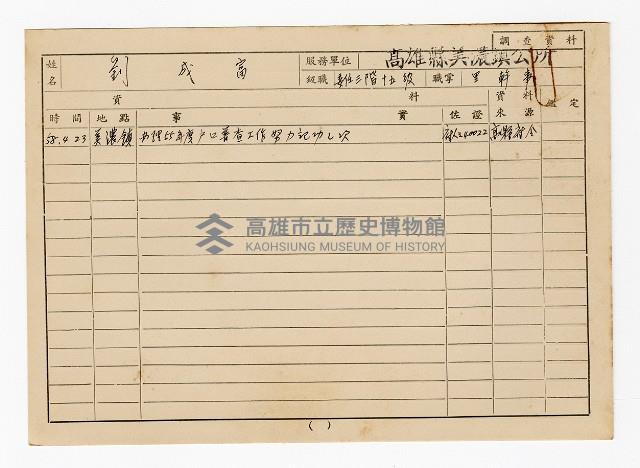 調查資料
姓名 劉成富 服務單位 高雄縣美濃鎮公所
級職 委任三階十五級 職掌 里幹事
資料 資料來源 鑑定
時間 地點 事實 佐證
58.4.23 美濃鎮 辦理55年度戶口普查工作努力記功乙次 府人240022 高縣府令
高雄市立歷史博物館
KAOHSIUNG MUSEUM OF HISTORY
( )